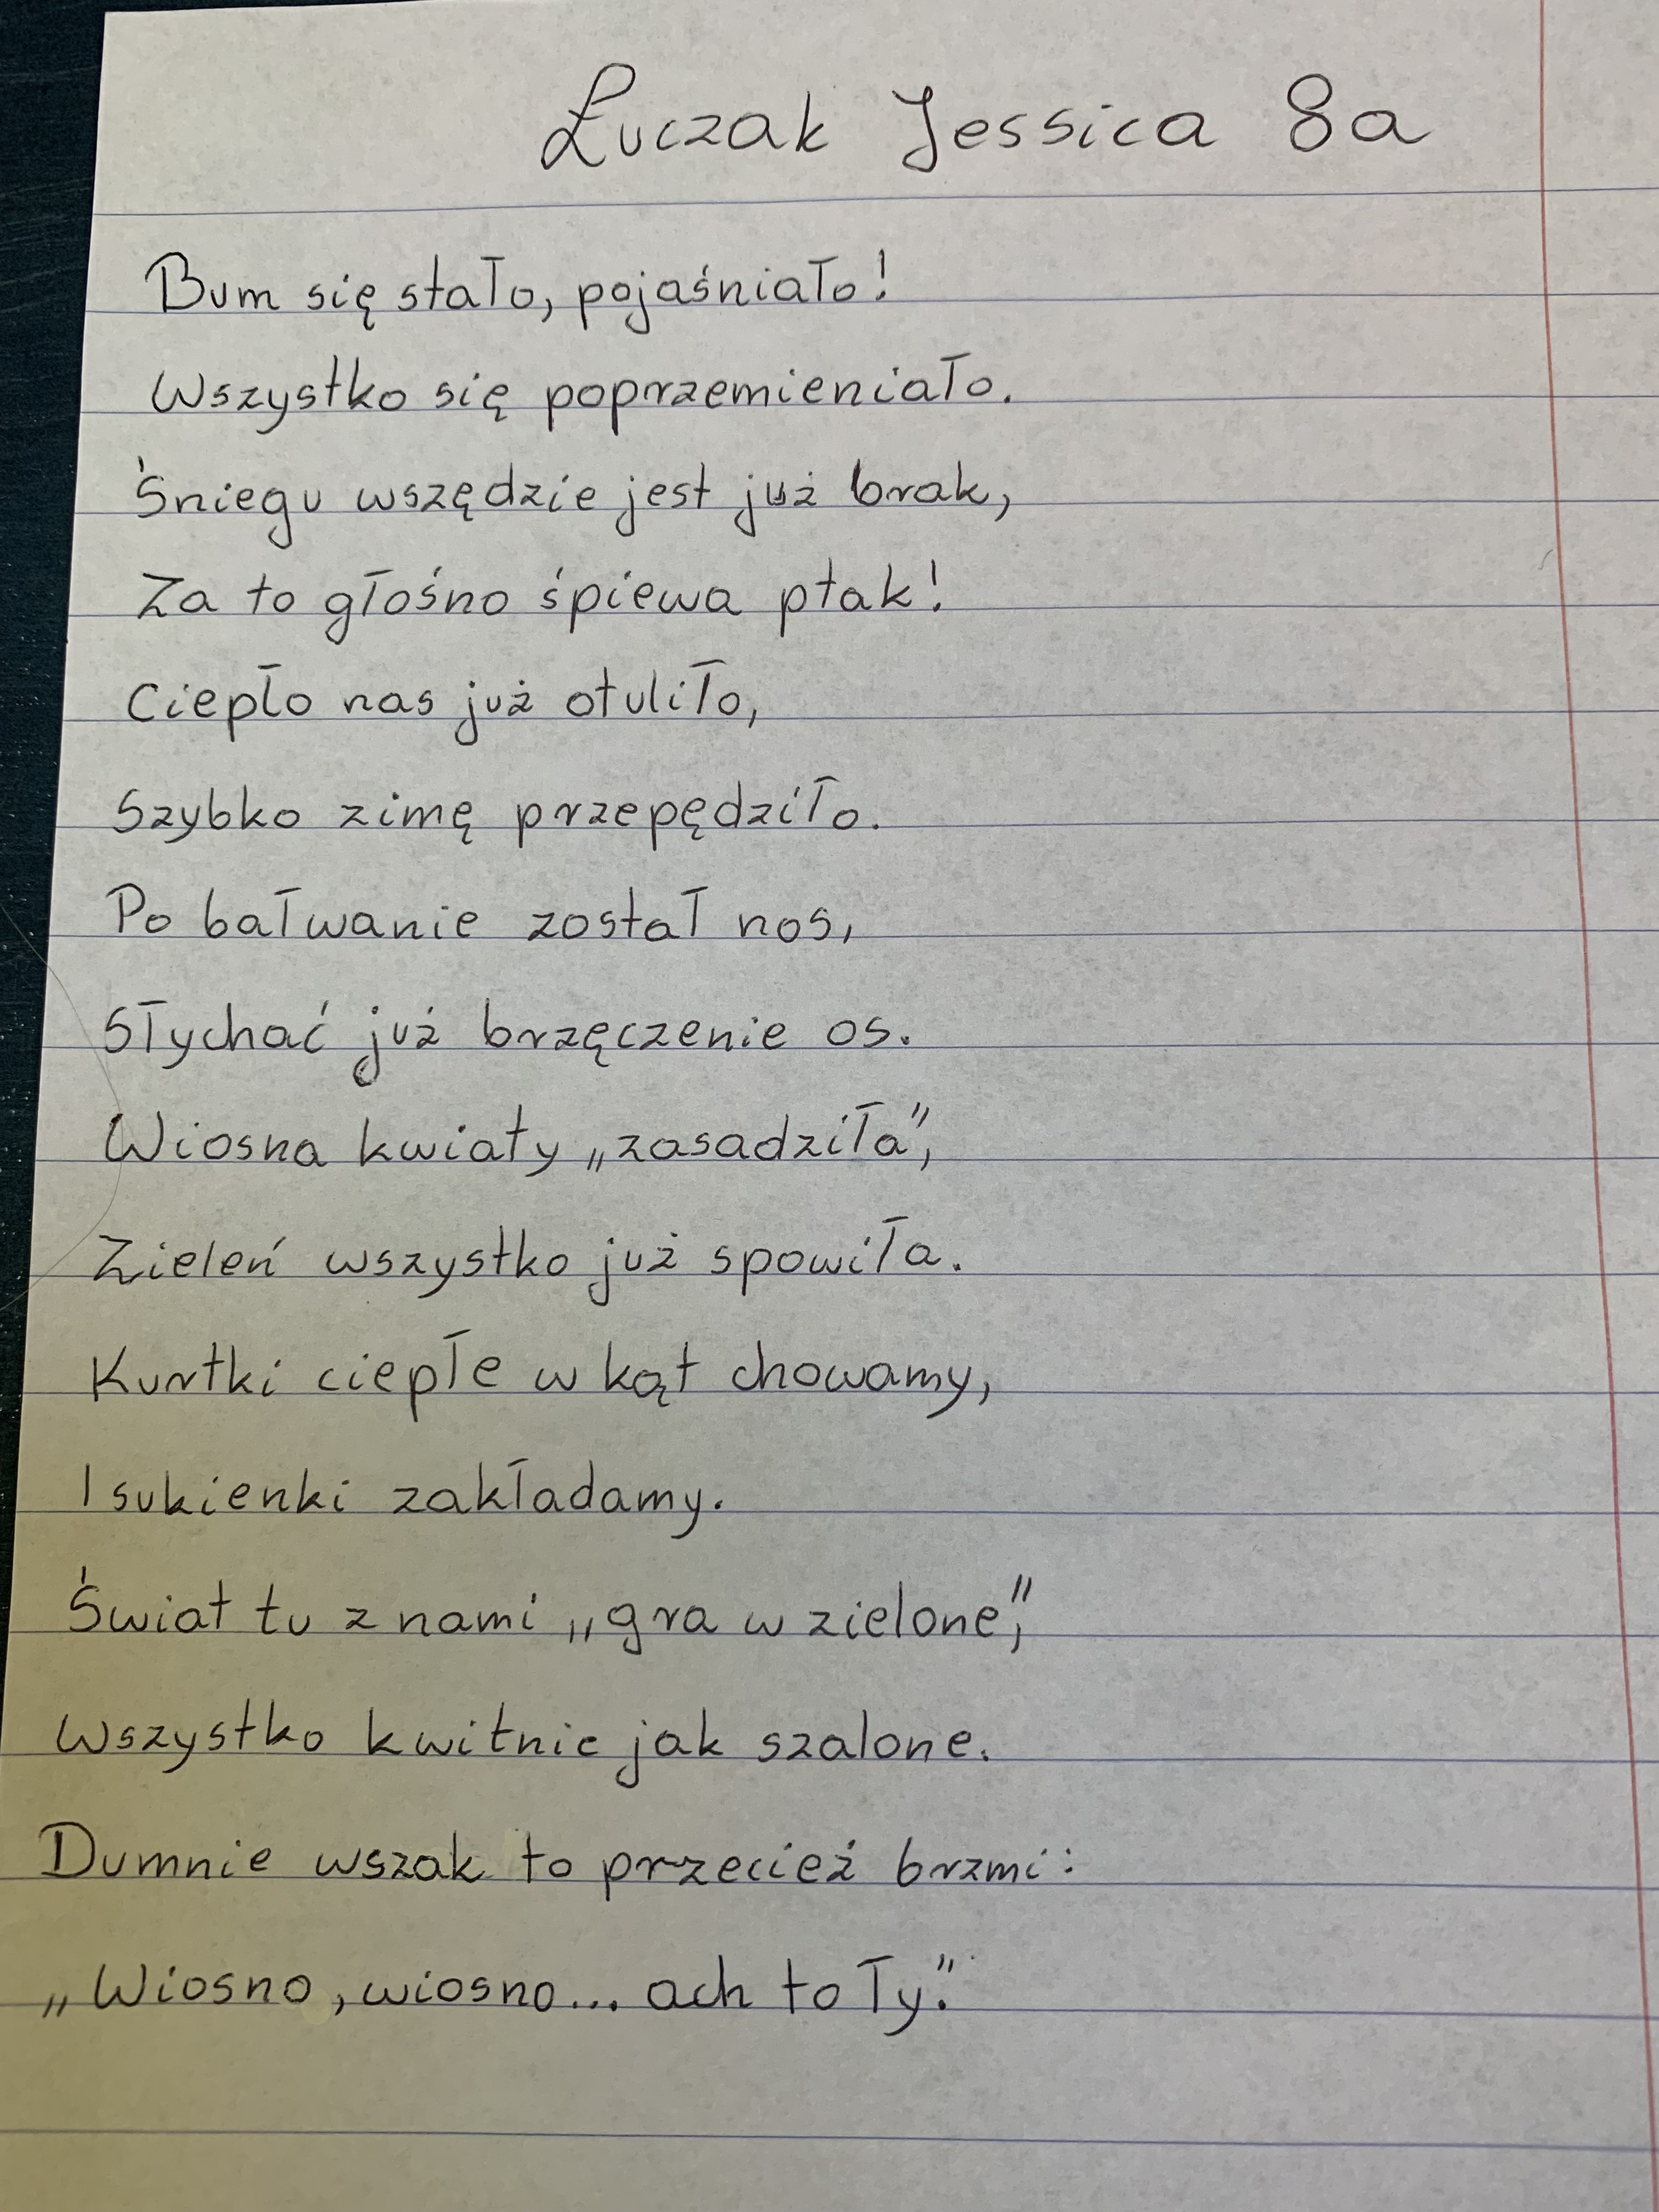 Łuczak Jessica 8a
Bum się stało, pojaśniało!
Wszystko się poprzemieniało.
Śniegu wszędzie jest już brak,
Za to głośno śpiewa ptak!
Ciepło nas już otuliło,
Szybko zimę przepędziło.
Po bałwanie został nos,
Słychać już brzęczenie os.
Wiosna kwiaty „zasadziła”,
Zieleń wszystko już spowiła.
Kurtki ciepłe w kąt chowamy,
I sukienki zakładamy.
Świat tu z nami „gra w zielone”,
Wszystko kwitnie jak szalone.
Dumnie wszak to przecież brzmi:
„Wiosno, wiosno... ach to Ty”.